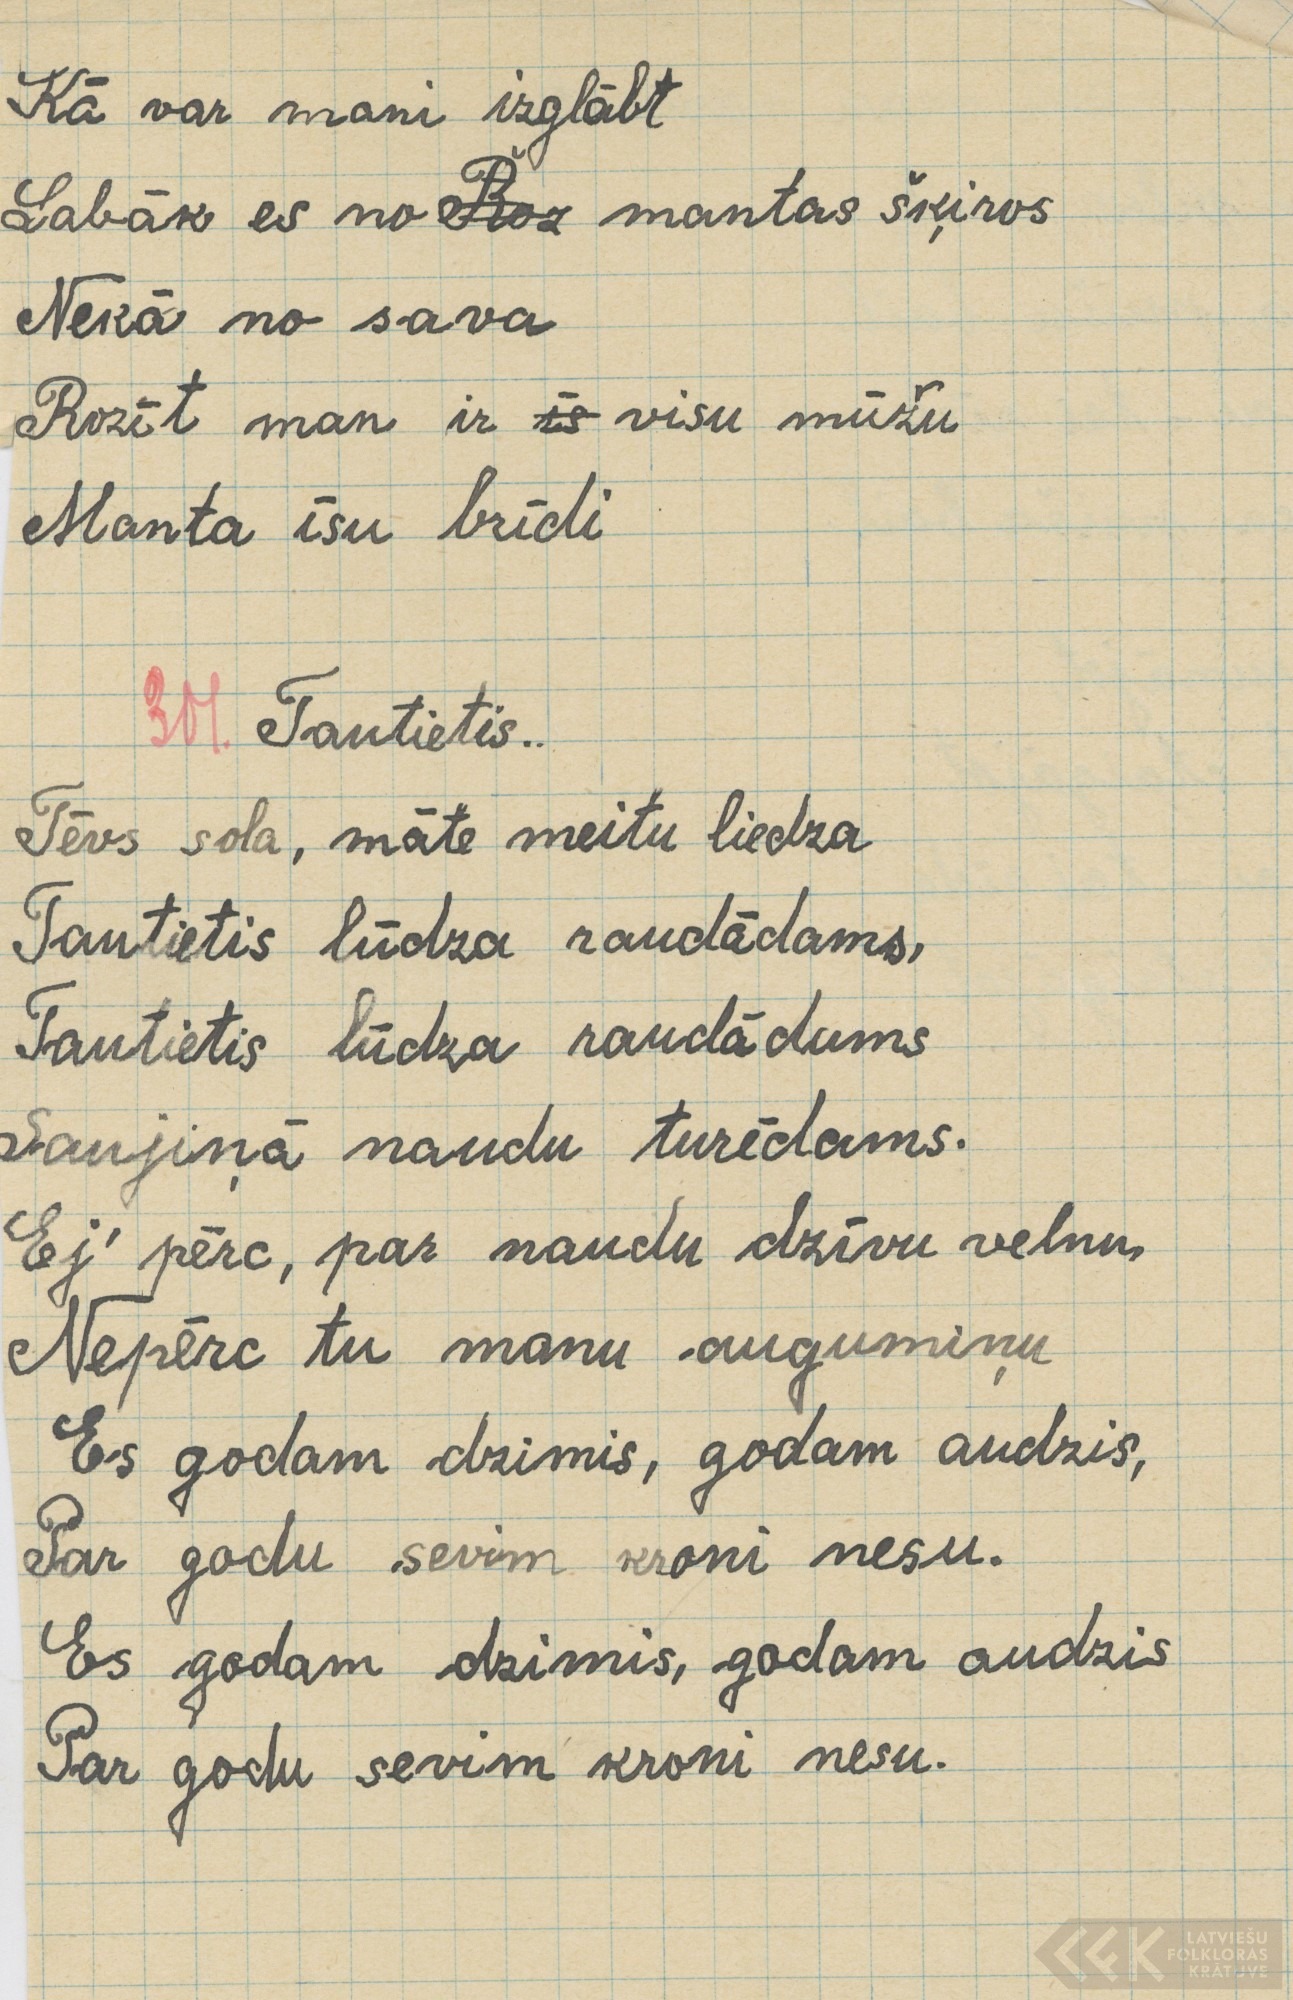 Kā var mani izglābt
Labāk es no Roz mantas šķiros
Nekā no sava
Rozīt man ir īs visu mūžu
Manta īsu brīdi
301. Tautietis..
Tēvs sola, māte meitu liedza
Tautietis lūdza raudādams,
Tautietis lūdza raudādums
Saujiņā naudu turēdams.
Ej' pērc, par naudu dzīvu velnu,
Nepērc tu manu augumiņu
Es godam dzimis, godam audzis,
Par godu sevim kroni nesu.
Es godam dzimis, godam audzis
Par godu sevim kroni nesu.
LATVIEŠU
FOLKLORAS
KRĀTUVE